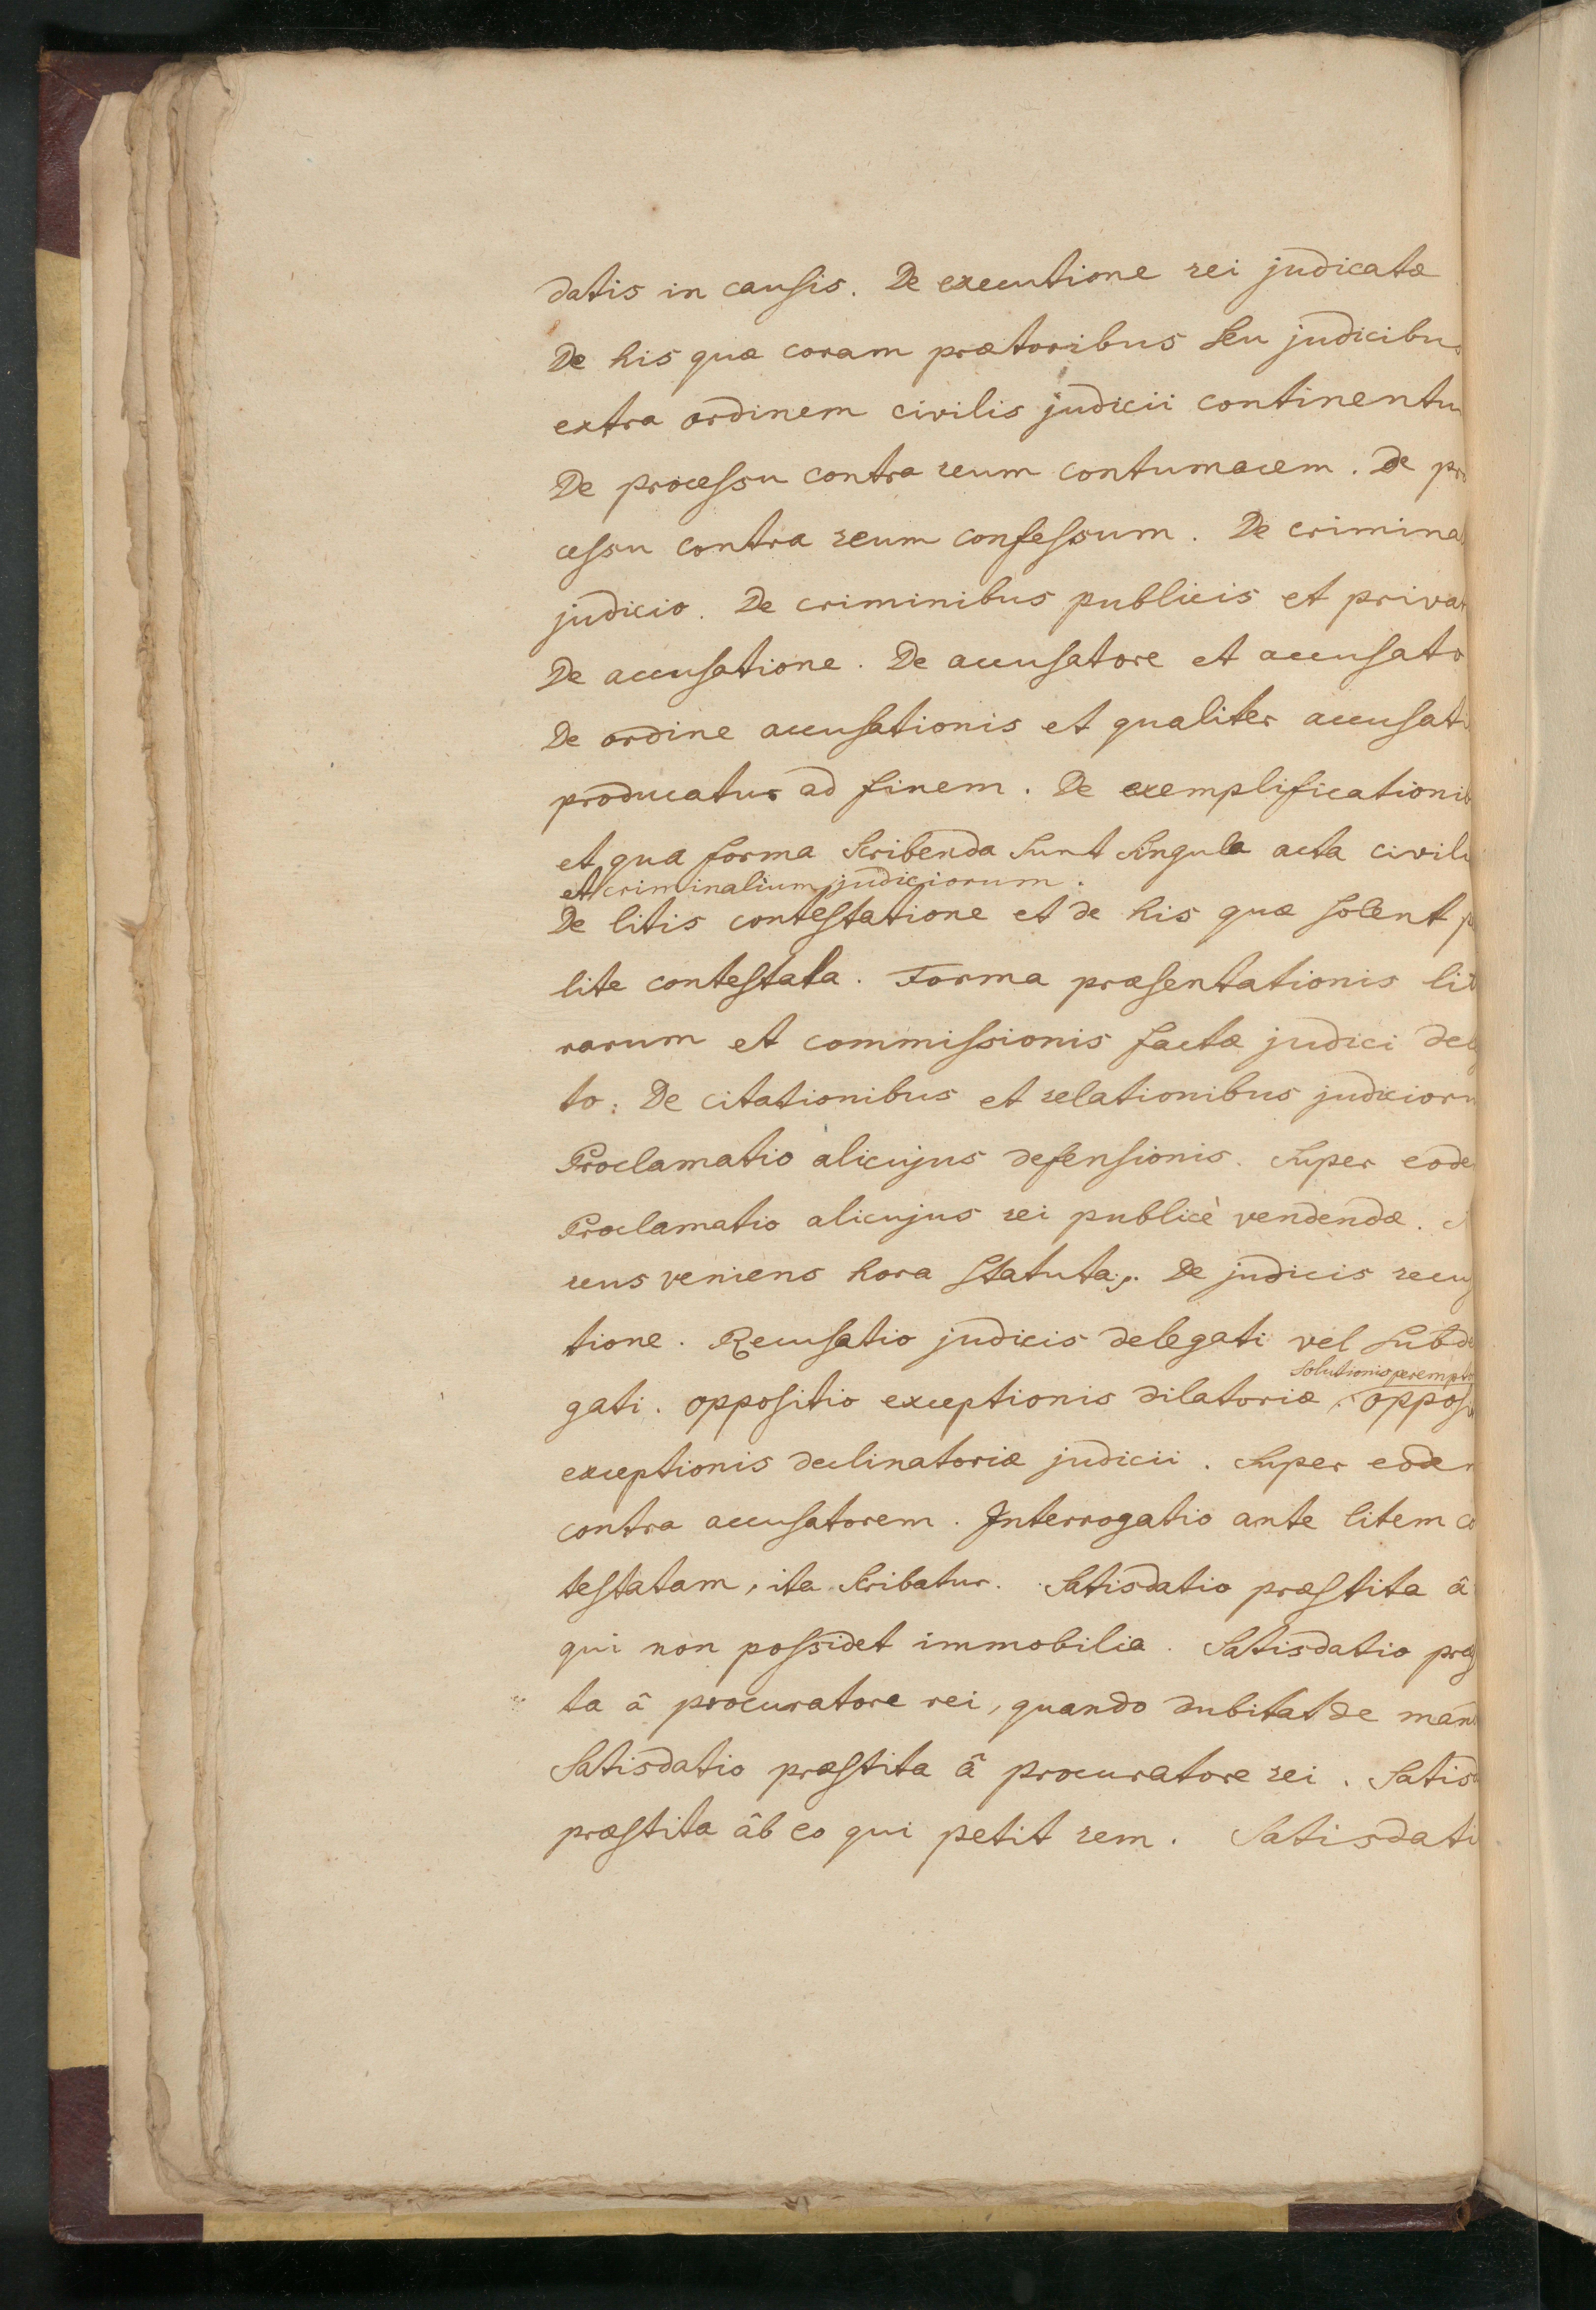 datis in causis. De executione rei judicatæ
De his quæ coram prætoribus seu judicibus
extra ordinem civilis judicii continentu
De processu contra reum contumacem. De pro
cessu contra reum confessum. De crimina
judicio. De criminibus publicis et privat
De accusatione. De accusatore et accusato
De ordine accusationis et qualiter accusati
producatur ad finem. De exemplificationib
et qua forma scribenda sunt singula acta civili
et criminalium judiciorum.
De litis contestatione et de his quæ solent p
lite contestata. Forma præsentationis lit
rarum et commissionis factæ judici dele
to. De citationibus et relationibus judicioru
Proclamatio alicujus defensionis. Super eode
Proclamatio alicujus rei publicè vendendæ. S
reus veniens hora statuta. De judicis recus
tione. Recusatio judicis delegati vel subde
solutionis perempto
gati. oppositio exceptionis dilatoriæ. opposi
exceptionis declinatoriæ judicii. Super eodem
contra accusatorem. Interrogatio ante litem co
testatam, ita scribatur. Satisdatio præstita â
qui non possidet immobilia. Satisdatio præs
ta â procuratore rei, quando dubitat de man
Satisdatio præstita â procuratore rei. Satisd
præstita âb eo qui petit rem. Satisdati